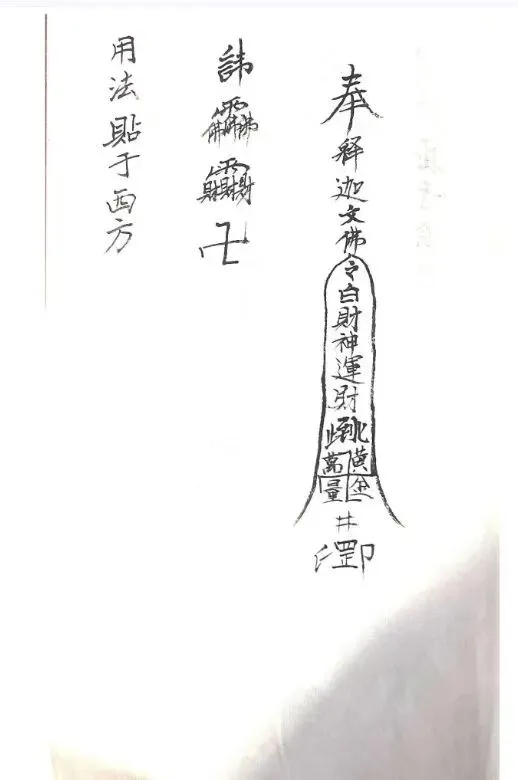 奉释迦文佛令白財神運財
黃金
萬量
井
諱
卍
用法貼于西方